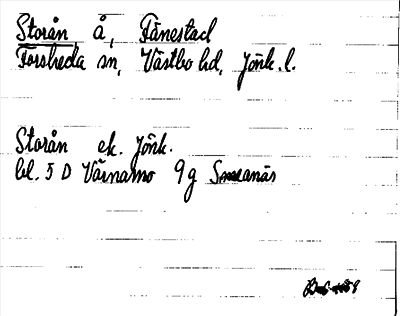 Storån å, Tånestad
Forsheda sn, Västbo hd, Jönk. l.
Storån ek. Jönk.
bl. 5 D Värnamo 9g